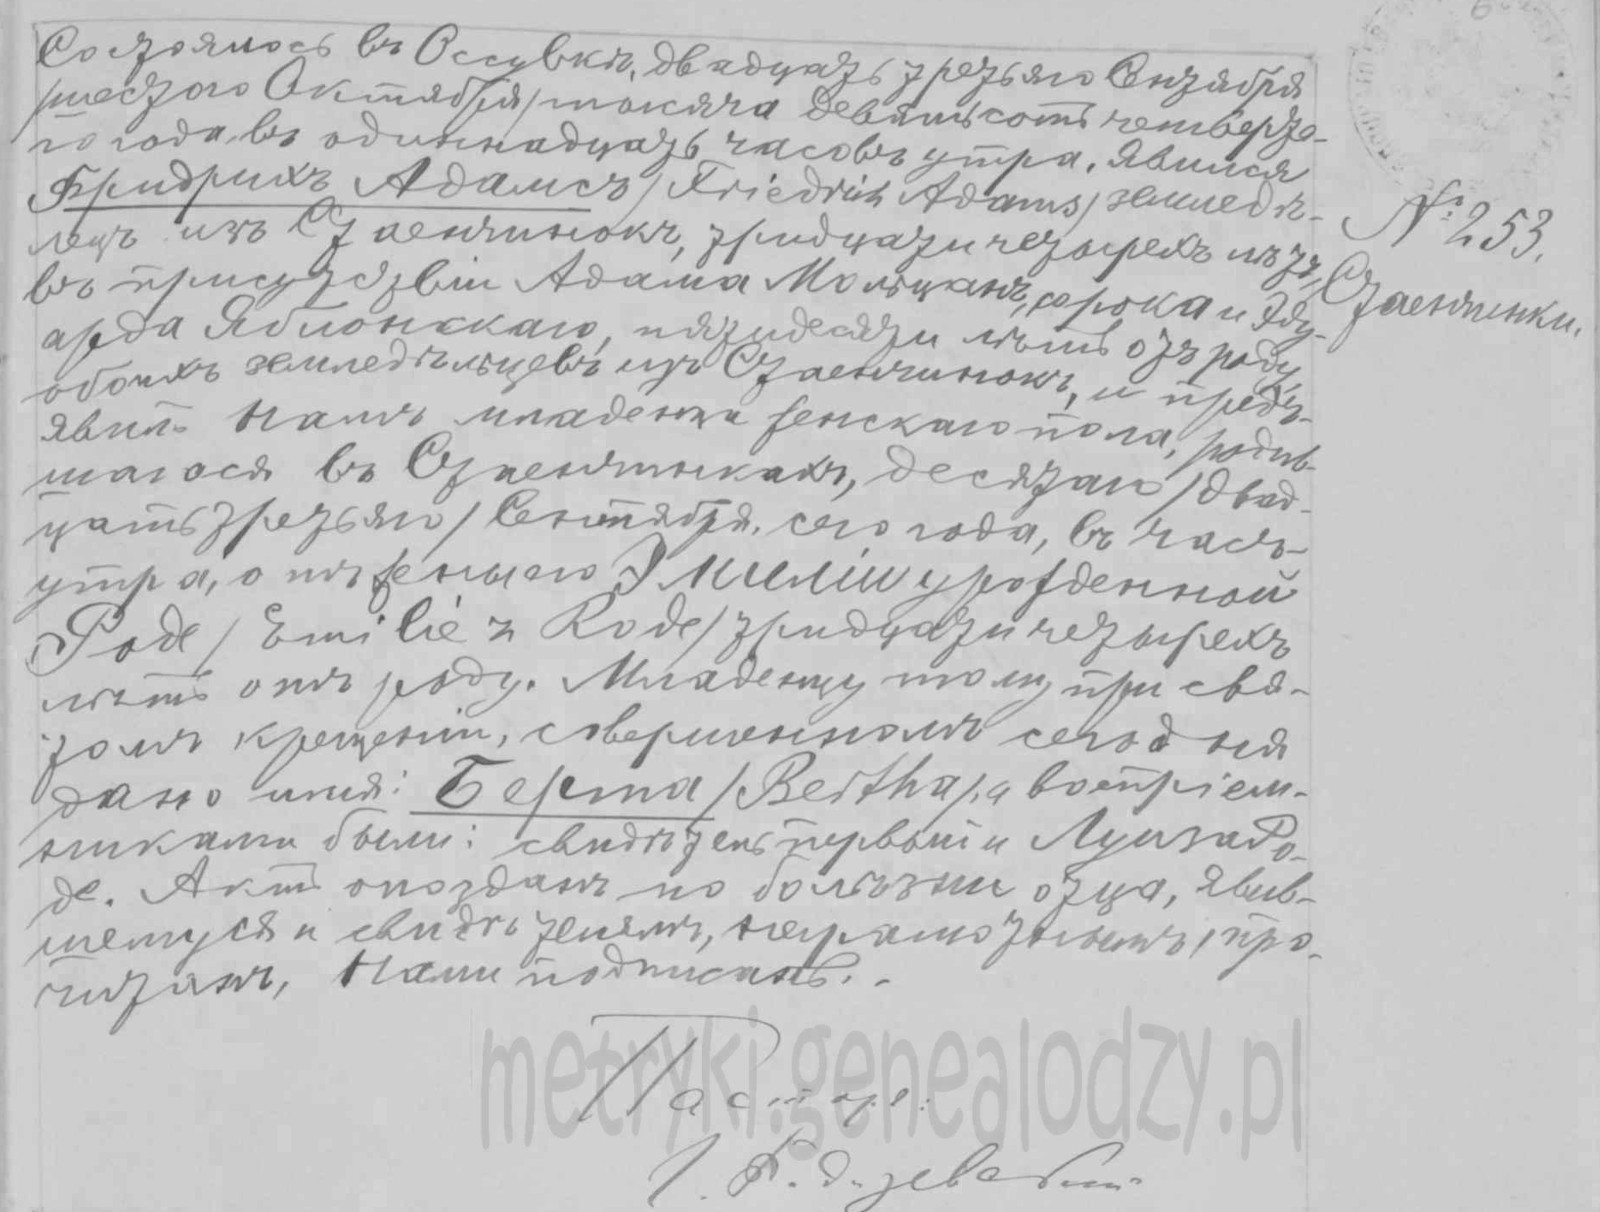 Состоялось въ Оссувкѣ, двадцать третьяго Сентября
/шестого Октября/ тысяча девятьсотъ четверта-
го года въ одиннадцать часовъ утра. Явился
Фридрихъ Адамсъ /Friedrich Adams/ земледѣ-
лецъ изъ Стаенчинокъ, тридцати четырехъ лѣтъ,
въ присутствіи Адама Мольцанъ, сорока и Эду-
арда Яблонскаго, пятидесяти лѣтъ отъ роду,
обоихъ земледѣльцевъ изъ Стаенчинокъ, и предъ-
явилъ Намъ младенца женскаго пола, родив-
шагося въ Стаенчинкахъ, десятаго /двад-
цать третьяго/ Сентября, сего года, въ часъ
утра, отъ жены его Эмиліи урожденной
Роде /Emilie z Rode/ тридцати четырехъ
лѣтъ отъ роду. Младенцу тому при свя-
томъ крещеніи, совершенномъ сегодня
дано имя: Берта /Bertha/, а воспріем-
никами были: свидѣтель первый и Луиза Ро-
де. Актъ опозданъ по болѣзни отца, явив-
шемуся и свидѣтелямъ, неграмотнымъ, про-
читанъ, Нами подписанъ.
Пасторъ:
№ 253.
Стаенчинки.
metryki.genealodzy.pl